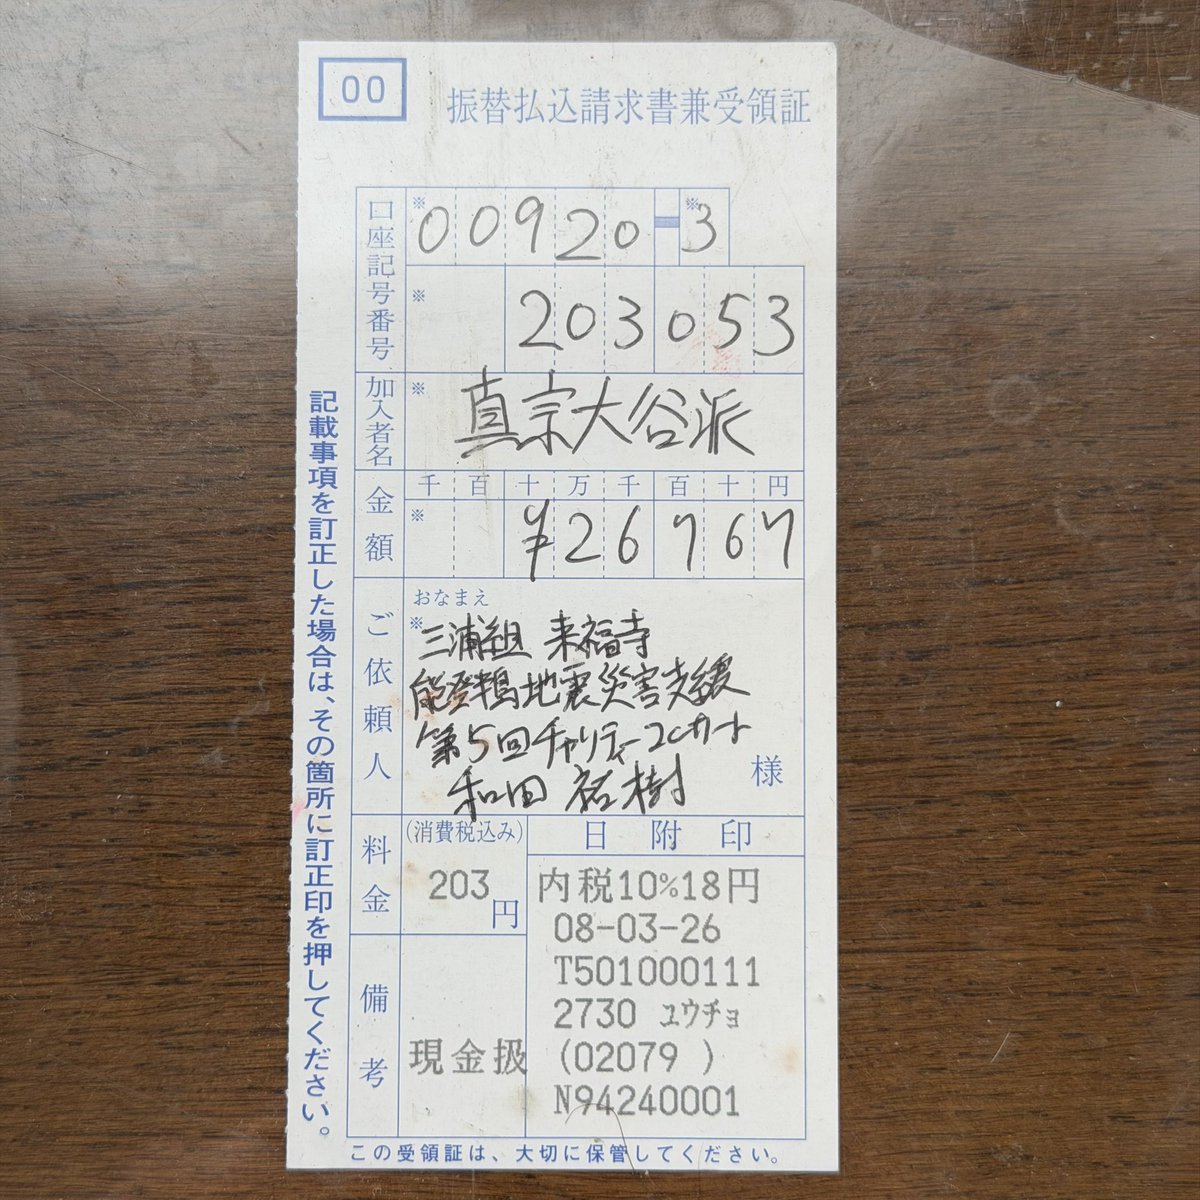 00
振替払込請求書兼受領証
口座記号番号
※ 00920-※3
※ 203053
加入者名
※ 真宗大谷派
金額
千 百 十 万 千 百 十 円
※ ¥26767
ご依頼人
おなまえ
※
三浦組 来福寺
能登半島地震災害支援
第5回チャリティーコンサート
和田 祐樹
様
料金
(消費税込み)
203
円
備考
現金扱
日附印
内税10%18円
08-03-26
T501000111
2730 ユウチョ
(02079 )
N94240001
記載事項を訂正した場合は、その箇所に訂正印を押してください。
この受領証は、大切に保管してください。